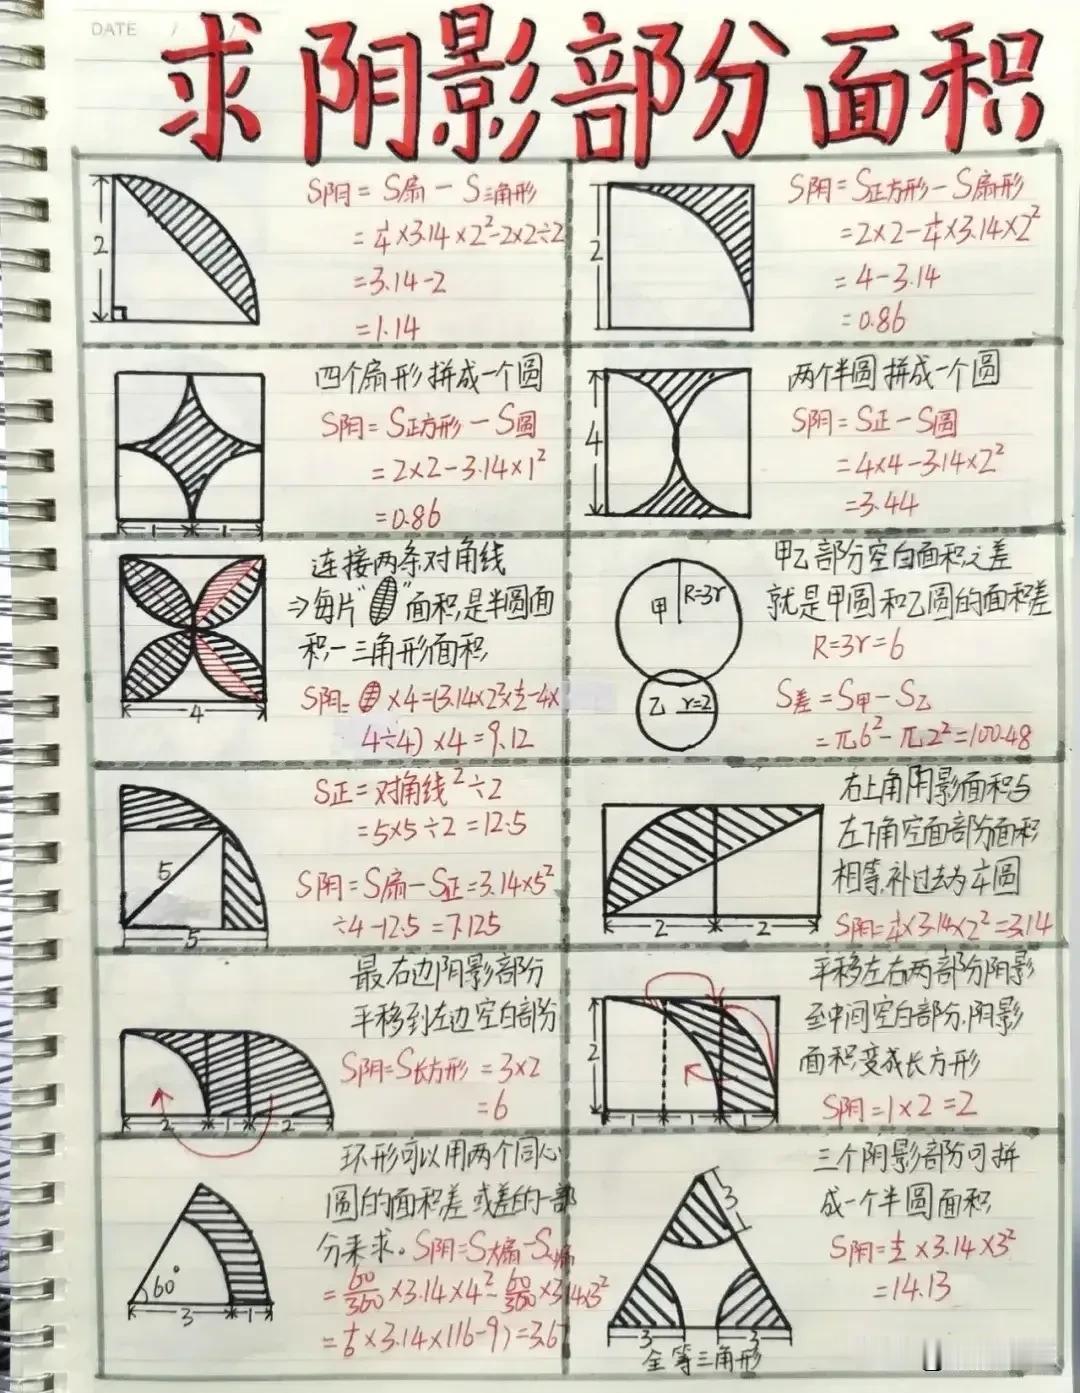 DATE / /
求阴影部分面积
2
S阴=S扇-S三角形
=1/4×3.14×2²-2×2÷2
=3.14-2
=1.14
2
S阴=S正方形-S扇形
=2×2-1/4×3.14×2²
=4-3.14
=0.86
1 1
四个扇形拼成一个圆
S阴=S正方形-S圆
=2×2-3.14×1²
=0.86
4
两个半圆拼成一个圆
S阴=S正-S圆
=4×4-3.14×2²
=3.44
4
连接两条对角线
⇒每片“ ”面积,是半圆面
积-三角形面积
S阴= ×4=(3.14×2²×1/2-4×
4÷4)×4=9.12
甲 R=3r
乙 r=2
甲乙部分空白面积之差
就是甲圆和乙圆的面积差
R=3r=6
S差=S甲-S乙
=π6²-π2²=100.48
5
5
S正=对角线²÷2
=5×5÷2=12.5
S阴=S扇-S正=3.14×5²
÷4-12.5=7.125
2 2
右上角阴影面积与
左下角空面部分面积
相等,补过去为1/4圆
S阴=1/4×3.14×2²=3.14
2 1 2
最右边阴影部分
平移到左边空白部分
S阴=S长方形=3×2
=6
2
1 1 1
平移左右两部分阴影
至中间空白部分,阴影
面积变成长方形
S阴=1×2=2
60°
3 1
环形可以用两个同心
圆的面积差或差的一部
分来求。S阴=S大扇-S小扇
=60/360×3.14×4²-60/360×3.14×3²
=1/6×3.14×(16-9)=3.67
3
3 3
全等三角形
三个阴影部分可拼
成一个半圆面积
S阴=1/2×3.14×3²
=14.13